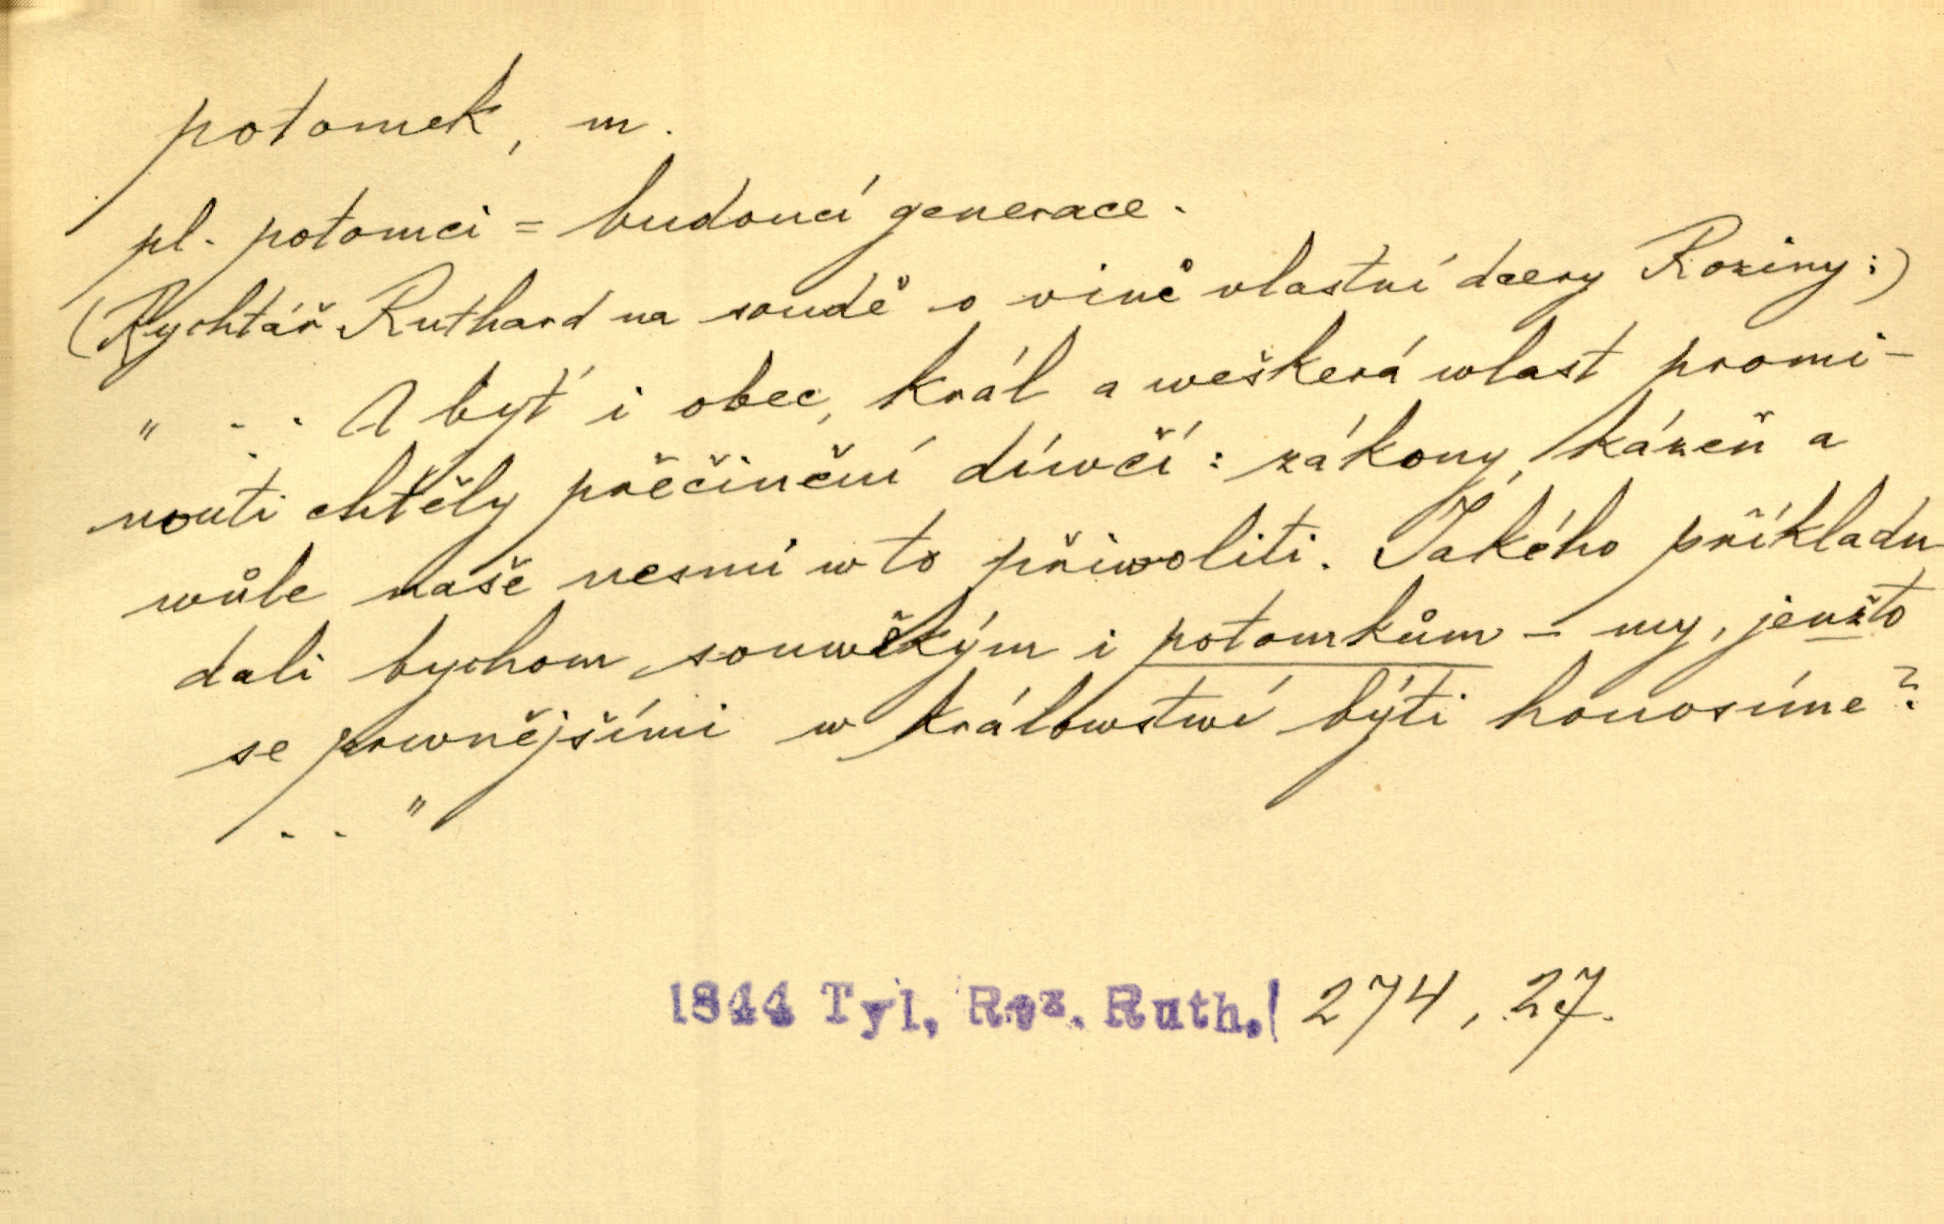 potomek, m.
pl. potomci = budoucí generace.
(Rychtář Ruthard na soudě o vině vlastní dcery Roziny:)
" . . . A byť i obec, král a weškerá wlast promi-
nouti chtěly přečinění díwčí: zákony, kázeň a
wůle naše nesmí w to přiwoliti. Jakého příkladu
dali bychom souwěkým i potomkům – my, jenžto
se prwnějšími w králowstwí býti honosíme?
. . "
1844 Tyl, Roz. Ruth. | 274, 27.